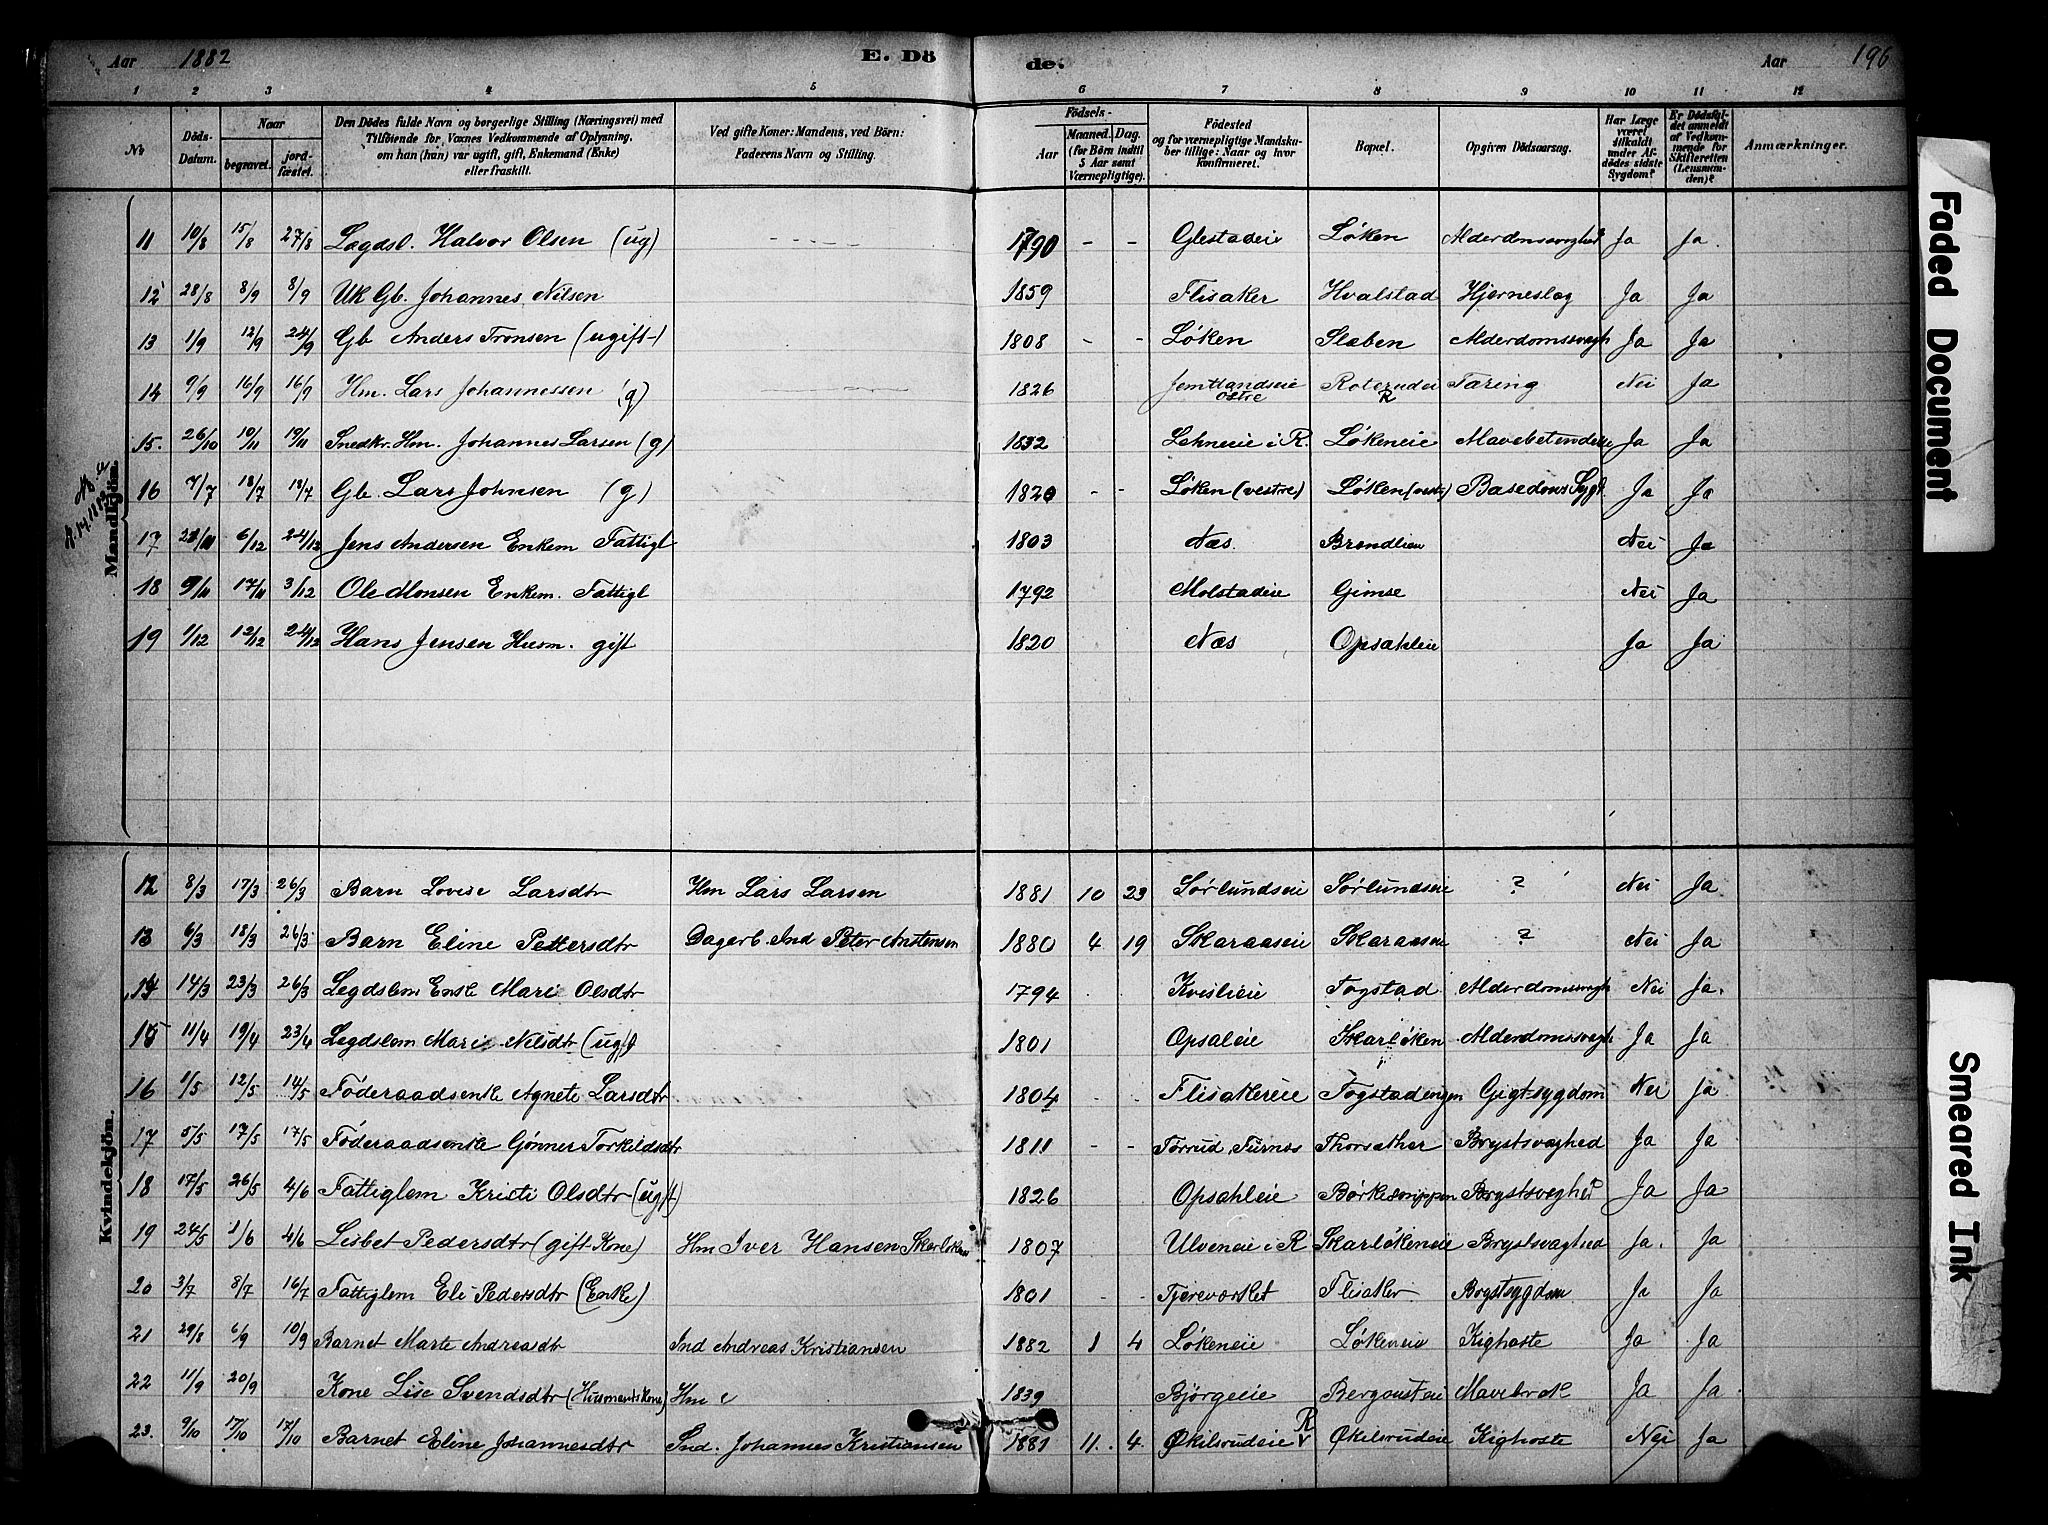 Aar 1882 E. Döde. Aar 196
1 2 3 4 5 6 7 8 9 10 11 12
No
Döds-Datum.
Naar
begravet.
jordfæstet.
Den Dödes fulde Navn og borgerlige Stilling (Næringsvei) med
Tilföiende for Voxnes Vedkommende af Oplysning,
om han (hun) var ugift, gift, Enkemand (Enke)
eller fraskilt.
Ved gifte Koner: Mandens, ved Börn:
Faderens Navn og Stilling.
Födsels-
Aar
Maaned. Dag.
(for Börn indtil
5 Aar samt
Værnepligtige).
Födested
og for værnepligtige Mandskaber
tillige: Naar og hvor
konfirmeret.
Bopæl.
Opgiven Dödsaarsag.
Har Læge
været
tilkaldt
under Afdödes
sidste
Sygdom?
Er Dödsfaldet
anmeldt
af Vedkommende
for
Skifteretten
(Lensmanden)?
Anmærkninger.
Mandkjön.
11 10/8 15/8 27/8 Lægdsl. Halvor Olsen (ug) 1790 - - Glestadeie Løken Alderdomssvaghed Ja Ja.
12 28/8 8/9 8/9 Uk Gb. Johannes Nilsen 1859 Flisaker Hvalstad Hjerneslag Ja Ja
13 1/9 12/9 24/9 Gb Anders Tronsen (ugift) 1808 - - Løken Slaben Alderdomssvagh Ja Ja
14 9/9 16/9 16/9 Hm. Lars Johannessen (g) 1826 Jemtlandseie østre Roterudei R Tæring Nei Ja
15. 26/10 10/11 19/11 Snedkr. Hm. Johannes Larsen (g) 1832 Lehneeie i R. Løkeneie Mavebetendelse Ja Ja
16 7/7 18/7 18/7 Gb. Lars Johnsen (g) 1820 - - Løken (vestre) Løken (vestr) Basedows Sygd. Ja Ja
17 6/12 24/12 Jens Andersen Enkem Fattigl 1803 Næs. Brændlien Nei Ja
18 9/11 17/11 3/12 Ole Monsen Enkem. Fattigl 1792 Molstadeie Gimse Nei Ja
19 1/12 12/12 24/12 Hans Jensen Husm. gift 1820 Næs Opsahleie Ja Ja
Kvindekjön.
12 8/3 17/3 26/3 Barn Lovise Larsdtr Hm Lars Larsen 1881 10 23 Sørlundseie Sørlundseie ? Nei Ja
13 6/3 18/3 26/3 Barn Eline Pettersdtr Dagarb. Ind Peter Anstensen 1880 4 19 Skaraaseie Skaraaseie ? Nei Ja
14 14/3 23/3 26/3 Legdslem Enke Mari Olsdtr 1794 Kvislieie Fogstad Alderdomssvagh Nei Ja.
15 11/4 19/4 23/4 Legdslem Mari Nilsdtr (ugft) 1801 Opsaleie Skarløken Alderdomssvagh Ja Ja
16 1/5 12/5 14/5 Føderaadsenke Agnete Larsdtr 1804 Flisakereie Fogstadengen Gigtsygdom Nei Ja
17 5/5 17/5 17/5 Føderaadsenke Gønner Torkildsdtr 1811 - - Torrud, Furnæs Thorsæther Brystsvaghed Ja Ja
18 17/5 26/5 4/6 Fattiglem Kristi Olsdtr (ugft) 1826 Opsahleie Børkesvippen Brystsvaghed Ja Ja
19 24/5 1/6 4/6 Lisbet Pedersdtr (gift Kone) Hm Iver Hansen Skarløken 1807 Ulveneie i R Skarløkeneie Brystsvaghed Ja. Ja
20 3/7 8/7 16/7 Fattiglem Eli Pedersdtr (Enke) 1801 Tjereværket Flisaker Brystsygdom Ja Ja
21 29/8 6/9 10/9 Barnet Marte Andreasdtr Ind Andreas Kristiansen 1882 1 4 Løkeneie Løkeneie Kighoste Ja Ja
22 11/9 20/9 Kone Lise Svendsdtr (Husmandskone) Hm 1839 Bjørgeeie Mavebrok Ja Ja
23. 9/10 17/10 17/10 Barnet Eline Johannesdtr Ind. Johannes Kristiansen 1881 11. 4. Økilsrudeie R Økilsrudeie Kighoste Nei Ja
Faded Document
Smeared Ink